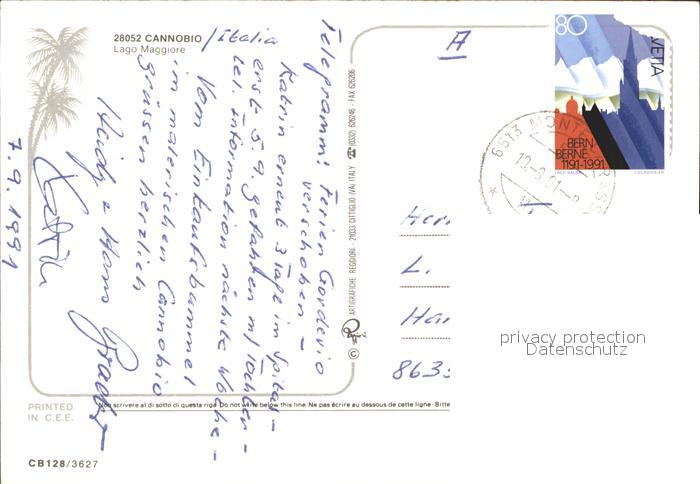 28052 CANNOBIO
Lago Maggiore
/Italia
Telegramm! Ferien Gordevio
verschoben –
Katrin erneut 3 Tage im Spital –
erst 5.9 gefahren m/Tochter –
Information nächste Woche –
Vom Einkaufsbummel
im malerischen Cannobio
grüssen herzlich
Heidy & Hans
Katrin
7.9.1991
PRINTED
IN C.E.E.
CB128/3627
Non scrivere al di sotto di questa riga Do not write below this line Ne pas écrire au dessous de cette ligne Bitte
© ARTIGRAFICHE REGGIORI - 21033 CITTIGLIO (VA) ITALY ☎ (0332) 626246 - FAX 626206
A
80
VETIA
BERN
BERNE
1191-1991
6513 MONTE
10.-9.91-8
Her
L.
Ha
863
privacy protection
Datenschutz